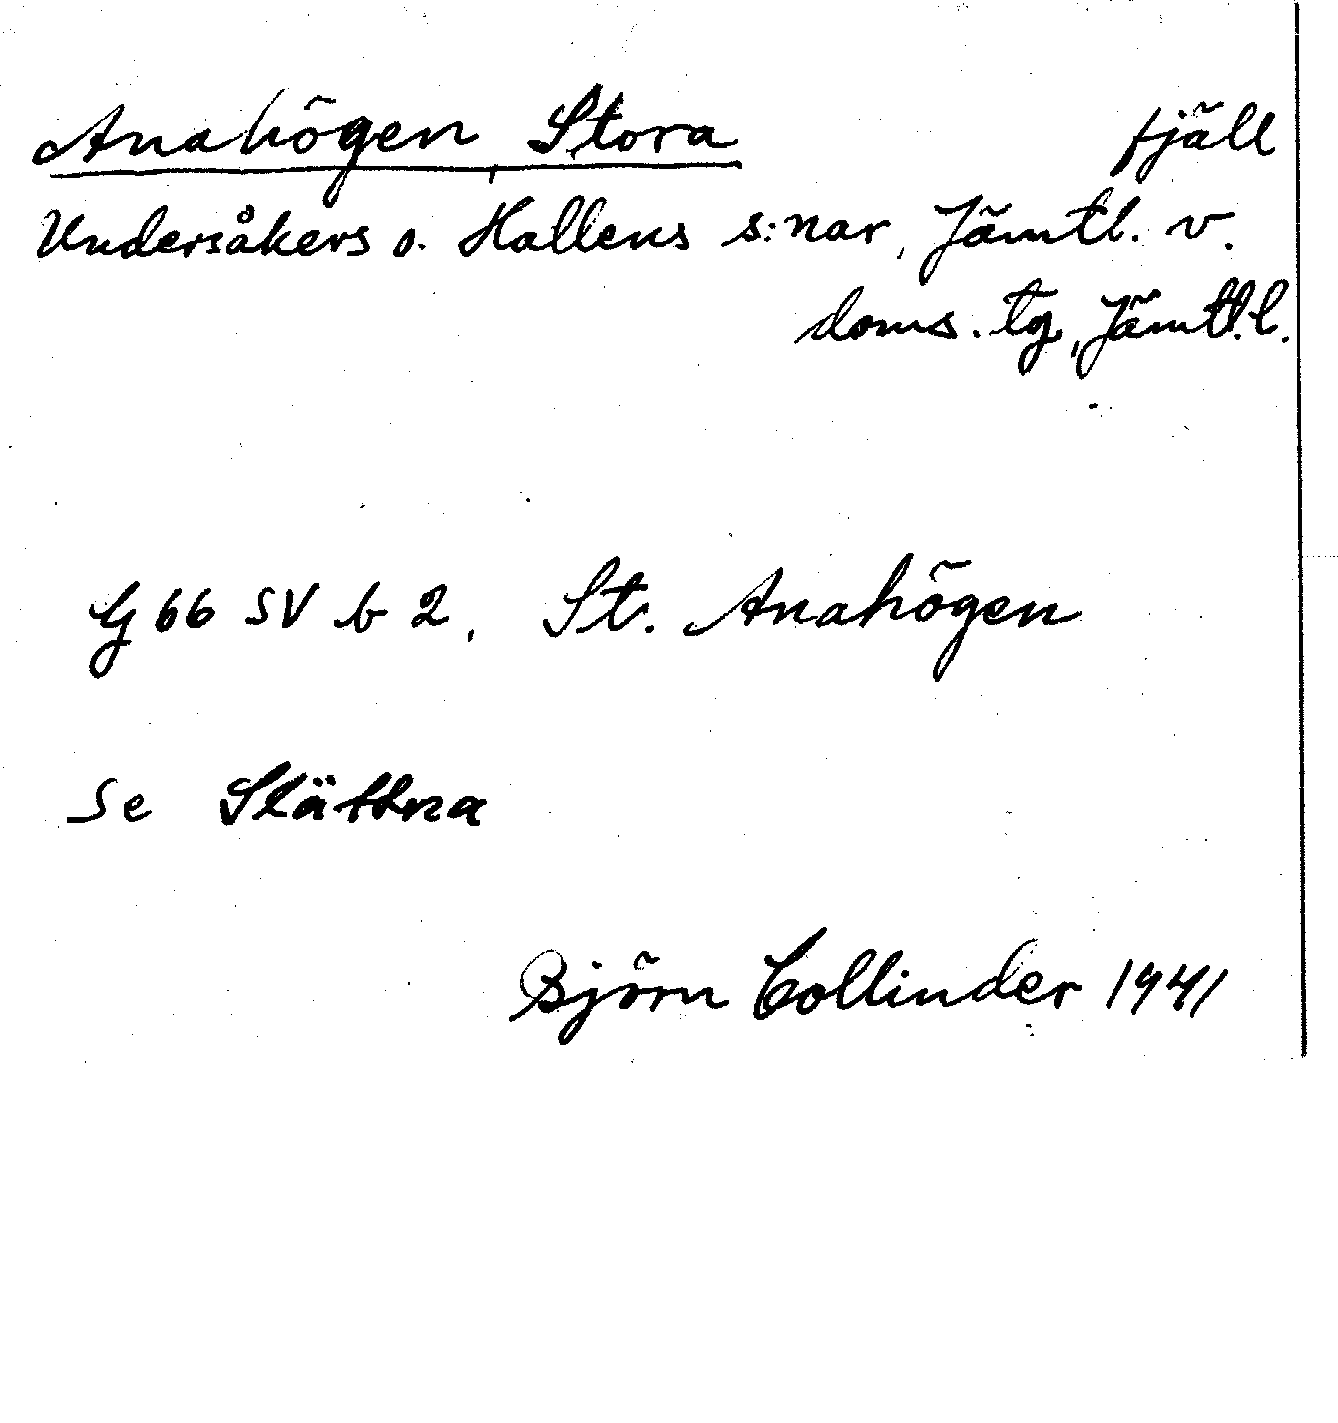 Anahögen, Stora fjäll
Undersåkers o. Hallens s:nar, Jämtl. v.
doms. tg, Jämtl. l.
G 66 SV b 2, St. Anahögen
Se Slättna
Björn Collinder 1941